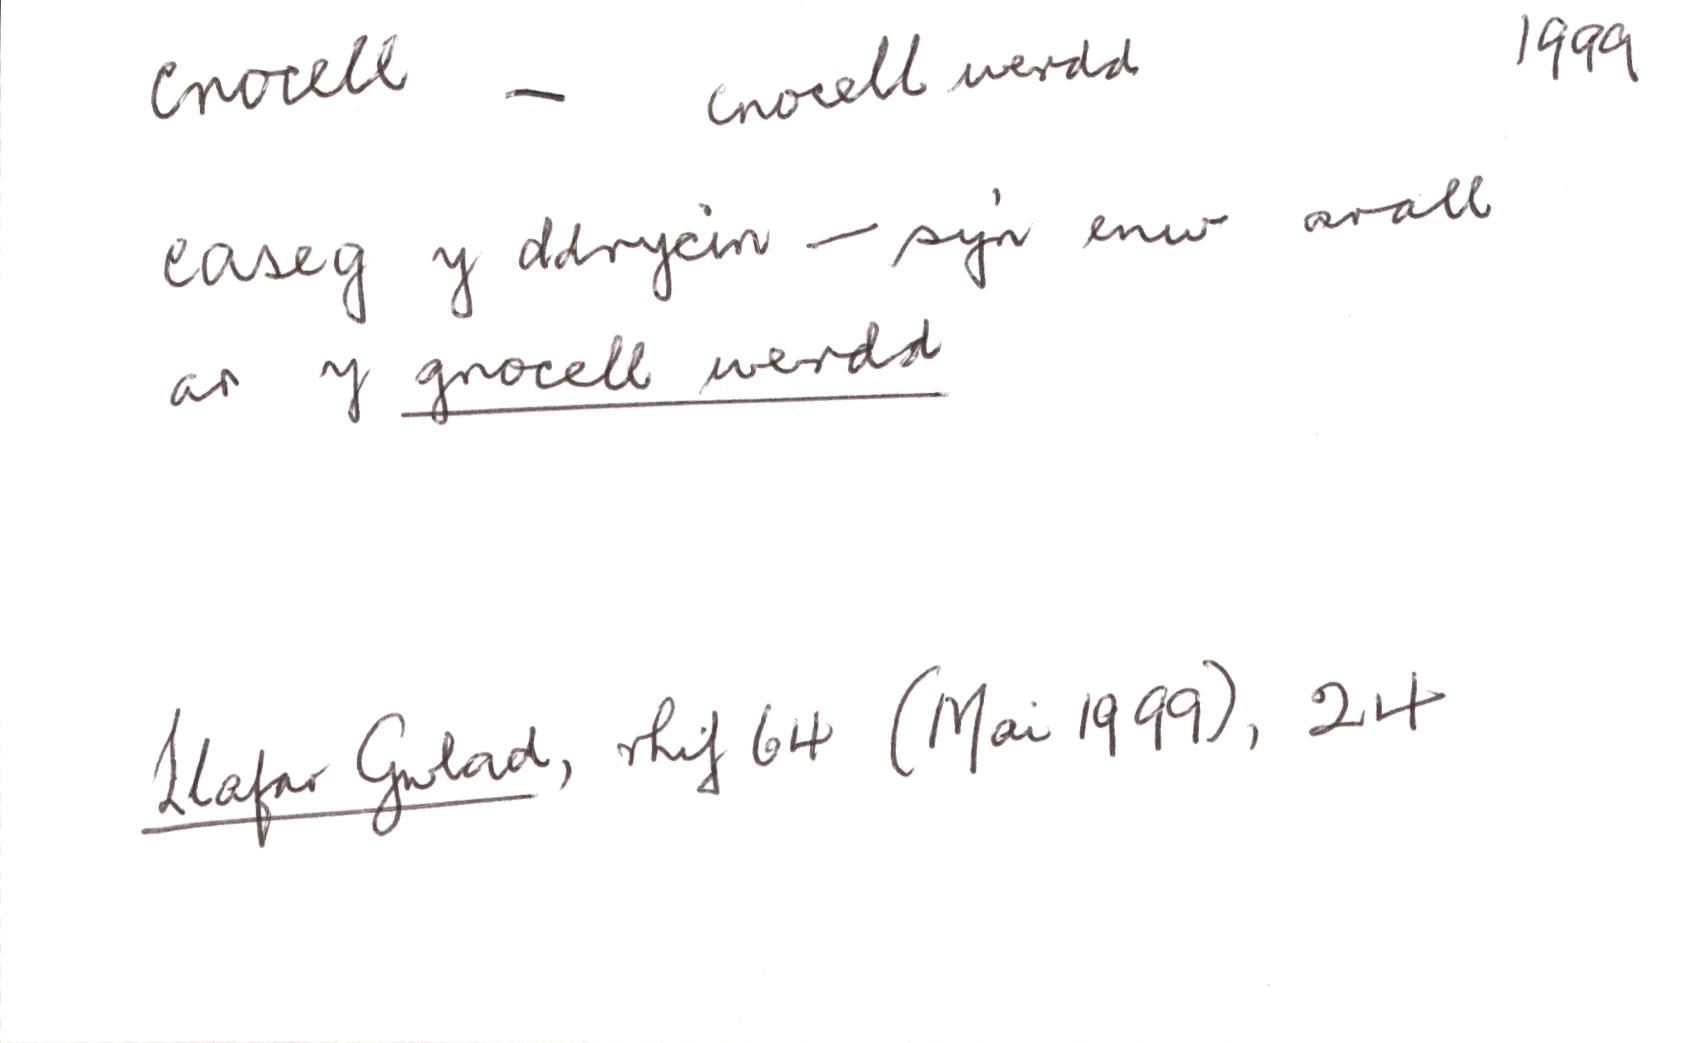 cnocell – cnocell werdd 1999
caseg y ddrycin – sy'n enw arall
ar y gnocell werdd
Llafar Gwlad, rhif 64 (Mai 1999), 24